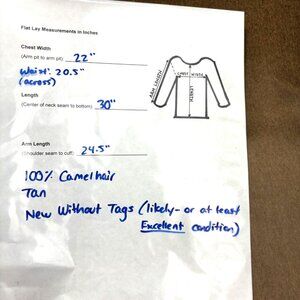 Flat Lay Measurements in Inches
Chest Width
(Arm pit to arm pit) 22"
Waist: 20.5"
(across)
Length
(Center of neck seam to bottom) 30"
ARM LENGTH
CHEST WIDTH
LENGTH
Arm Length
(Shoulder seam to cuff) 24.5"
100% Camelhair
Tan
New Without Tags (likely - or at least
Excellent condition)